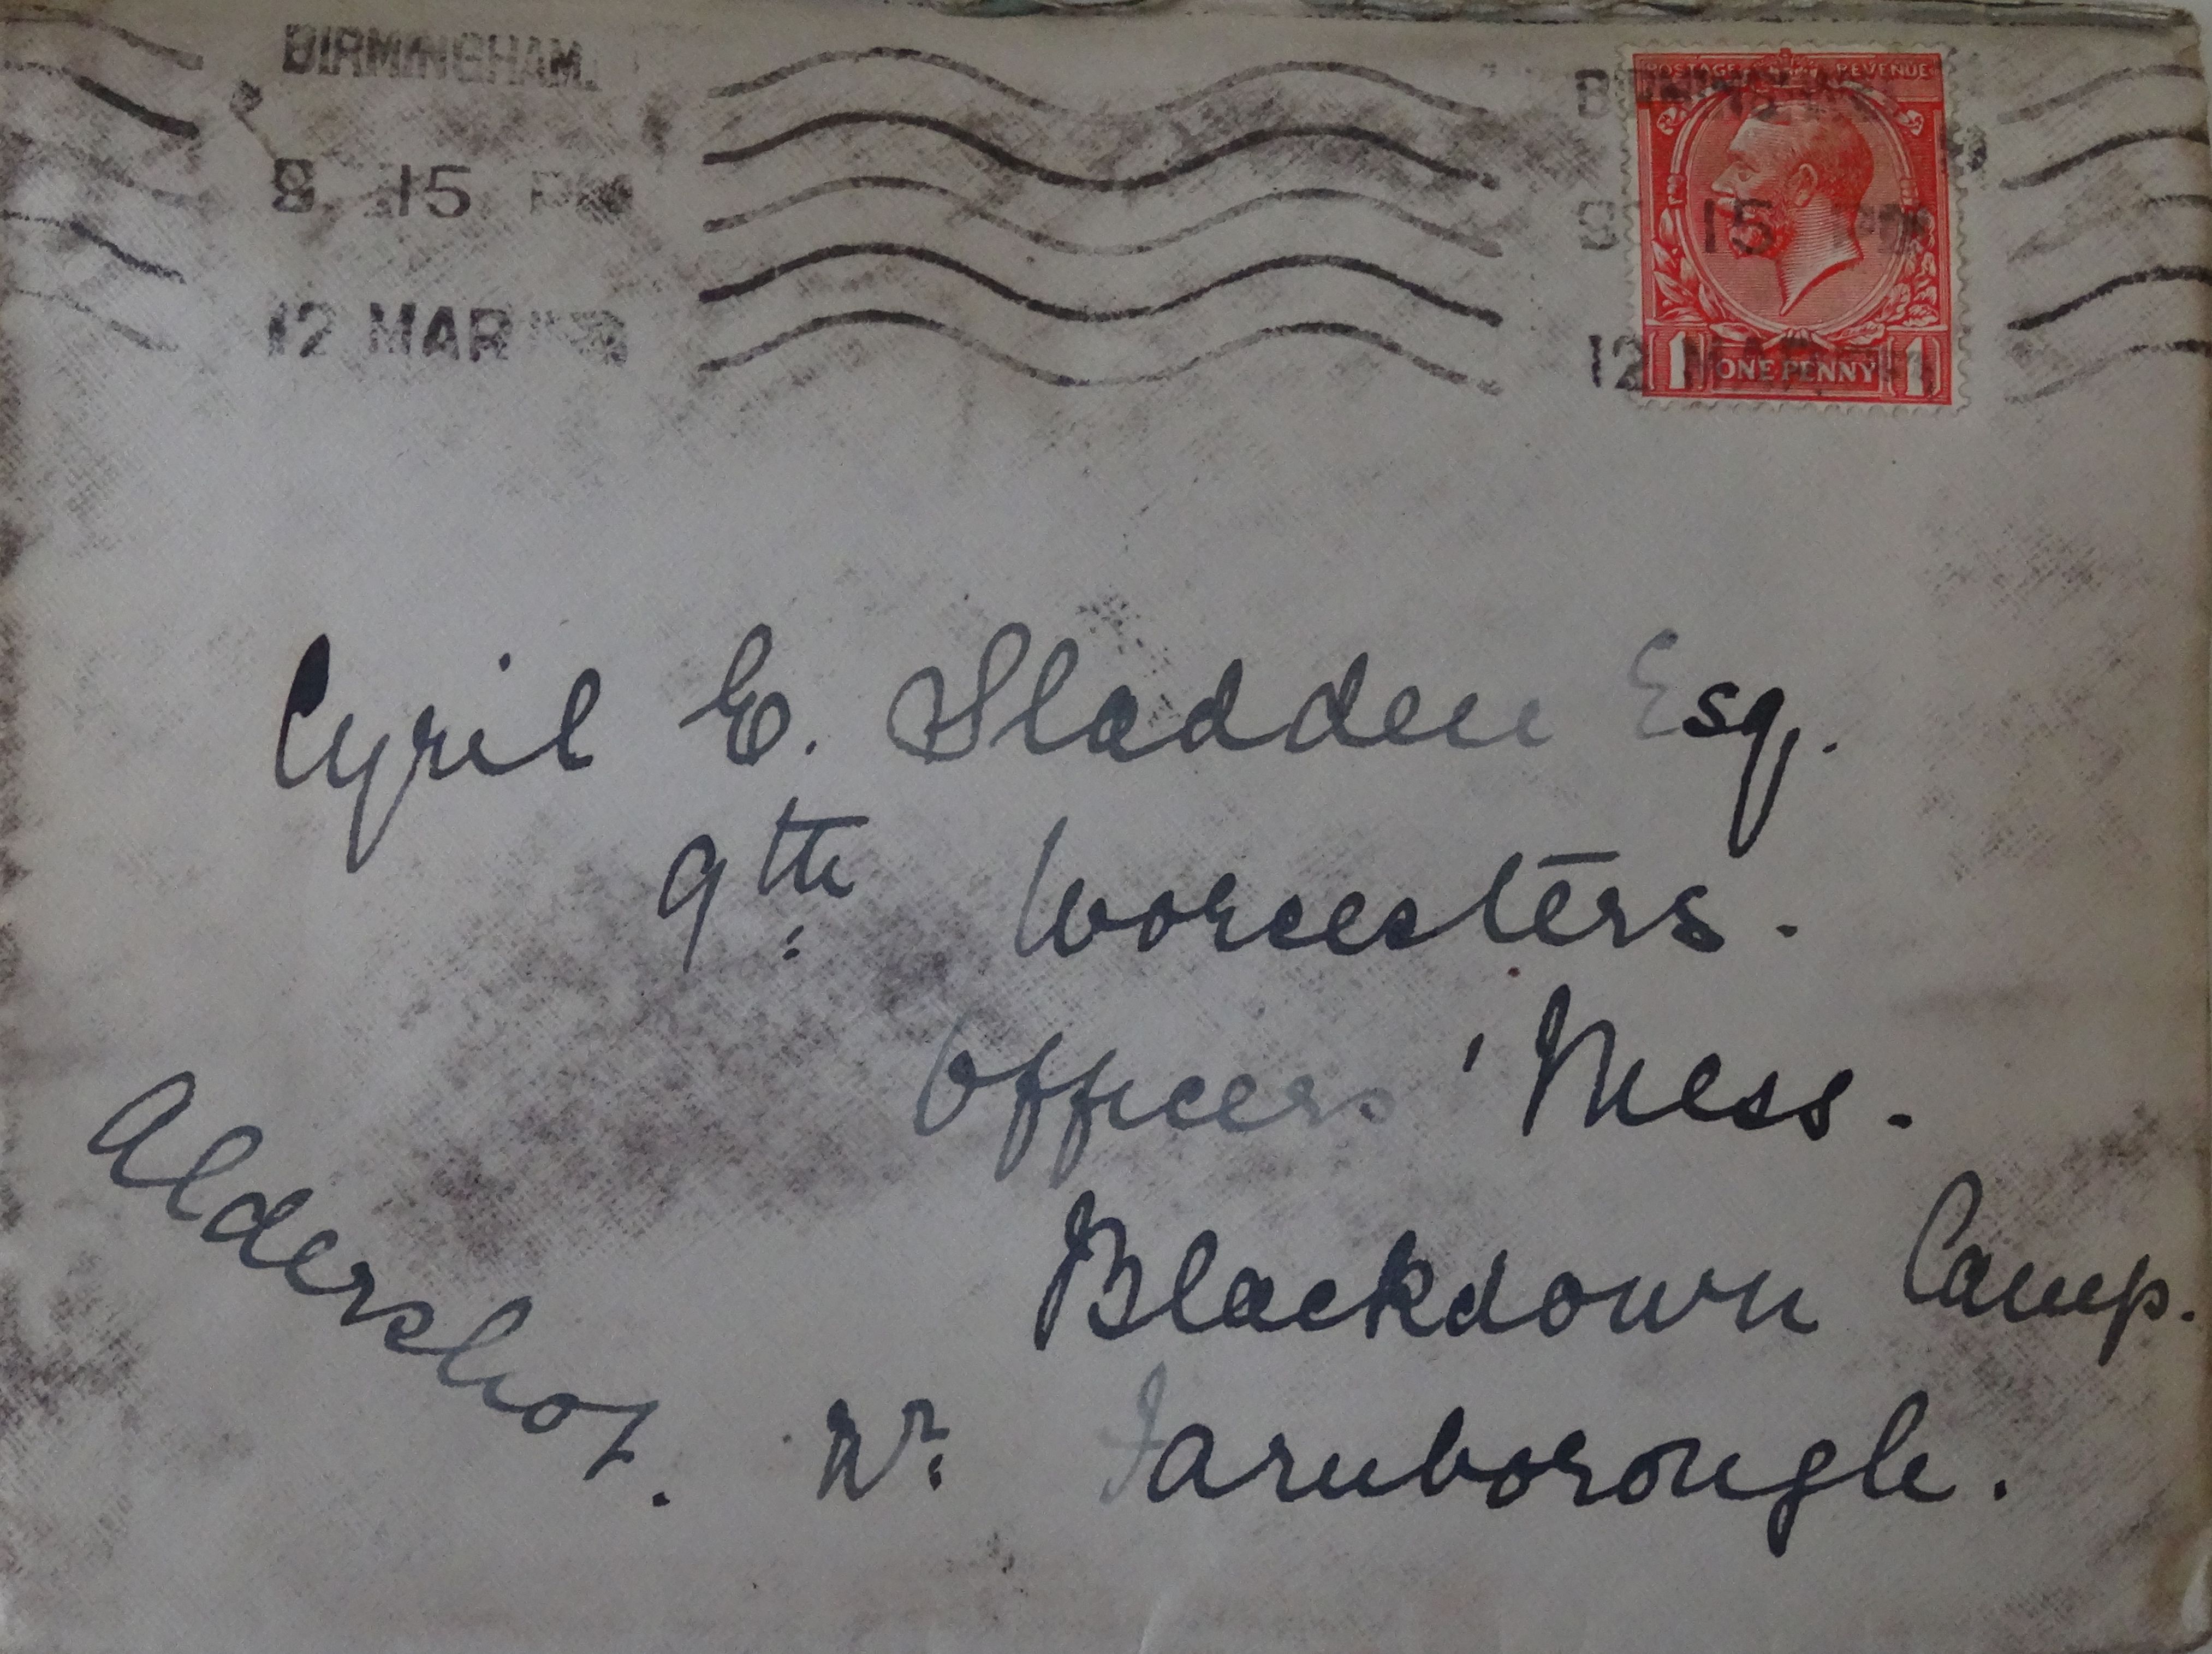 BIRMINGHAM.
8. 15 PM
12 MAR
POSTAGE REVENUE
15
12 MAR
1 ONE PENNY 1
Cyril E. Sladden Esq.
9th Worcesters.
Officers' Mess.
Blackdown Camp.
Nr Farnborough.
Aldershot.